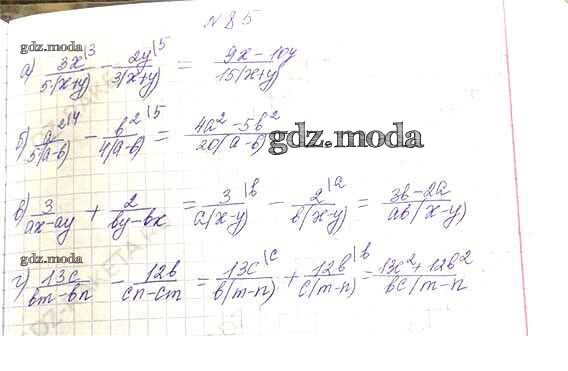 №85
gdz.moda
а) 3x|3 / 5(x+y) − 2y|5 / 3(x+y) = 9x − 10y / 15(x+y)
б) a²|4 / 5(a-b) − b²|5 / 4(a-b) = 4a² − 5b² / 20(a-b)
gdz.moda
в) 3 / ax-ay + 2 / by-bx = 3|b / a(x-y) − 2|a / b(x-y) = 3b-2a / ab(x-y)
gdz.moda
г) 13c / bm-bn − 12b / cn-cm = 13c|c / b(m-n) + 12b|b / c(m-n) = 13c² + 12b² / bc(m-n